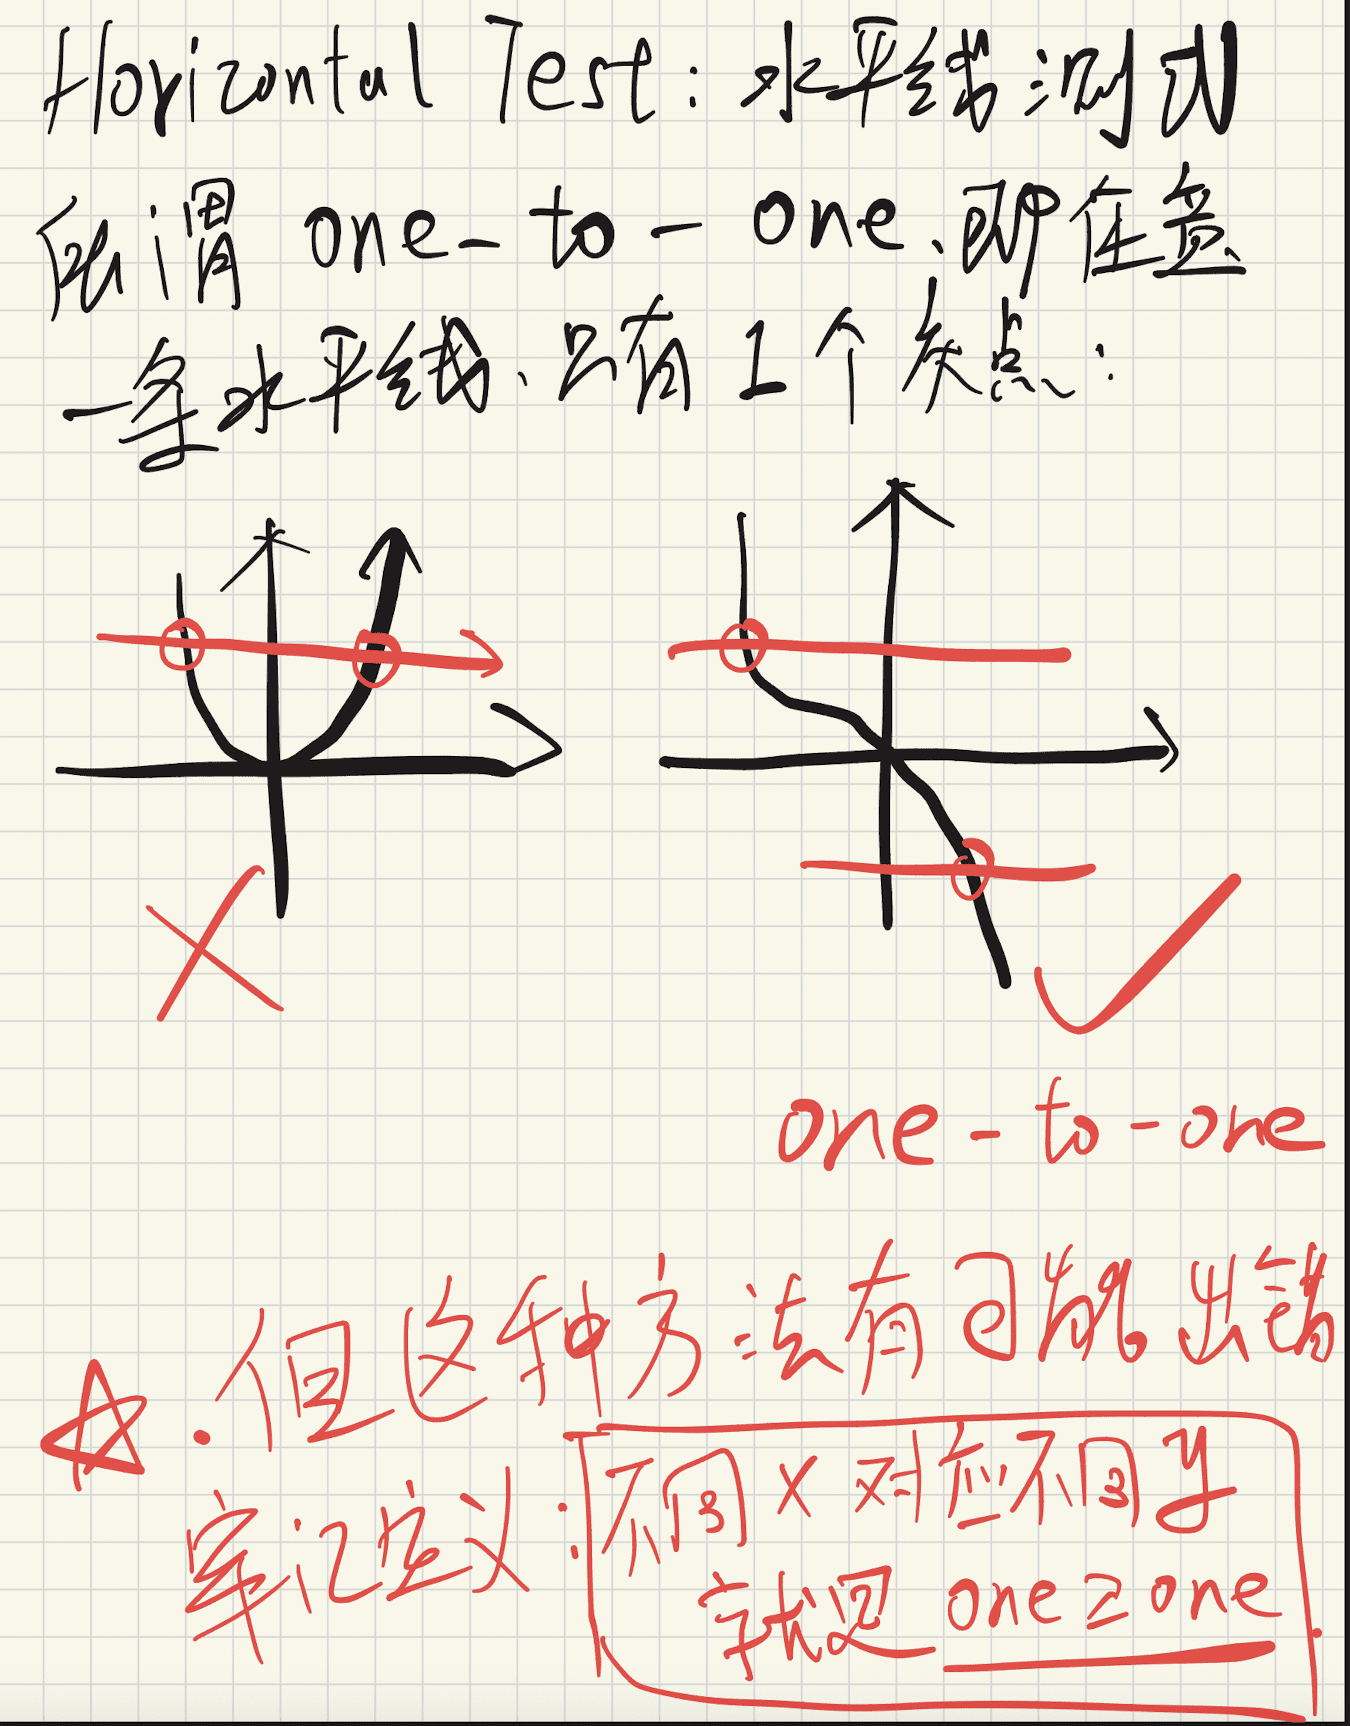 Horizontal Test: 水平线测试
所谓 one-to-one、即任意
一条水平线、只有1个交点:
one-to-one
但这种方法有可能出错
牢记定义: 不同x对应不同y
就是 one 2 one